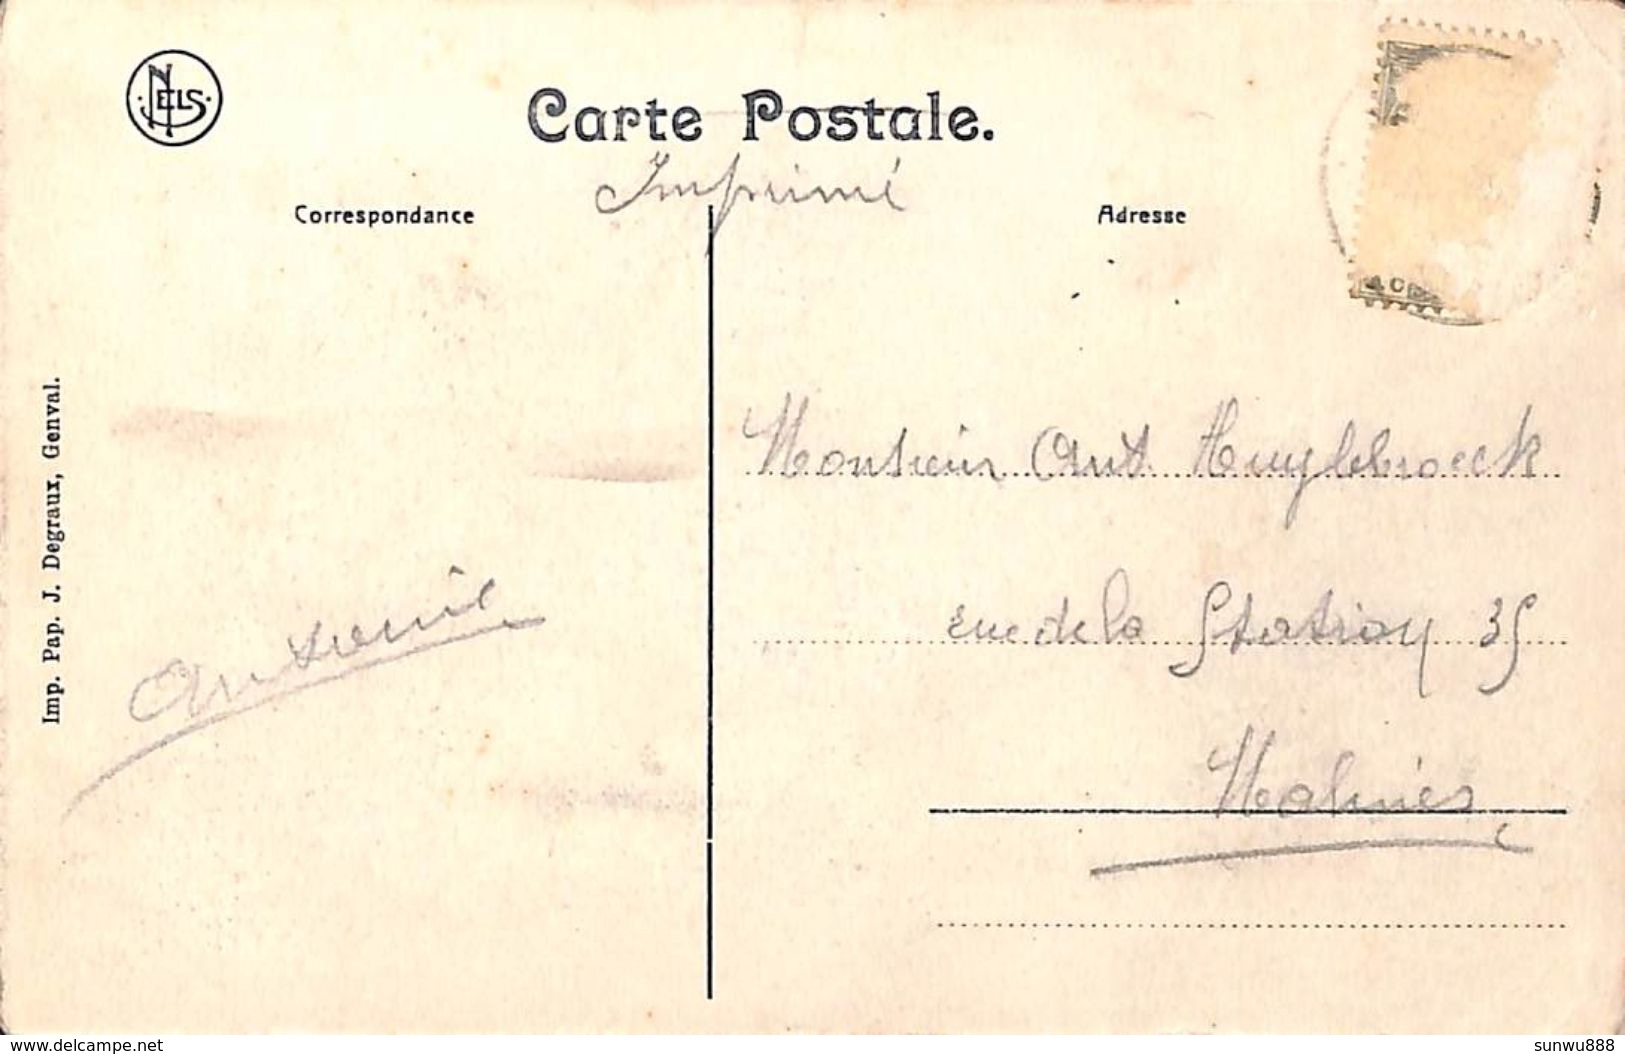 NELS
Carte Postale.
Imprimé
Correspondance
Adresse
Imp. Pap. J. Degraux, Genval.
Monsieur Ant Huylebroeck
rue de la Station 35
Malines
Antonie
www.delcampe.net
sunwu888